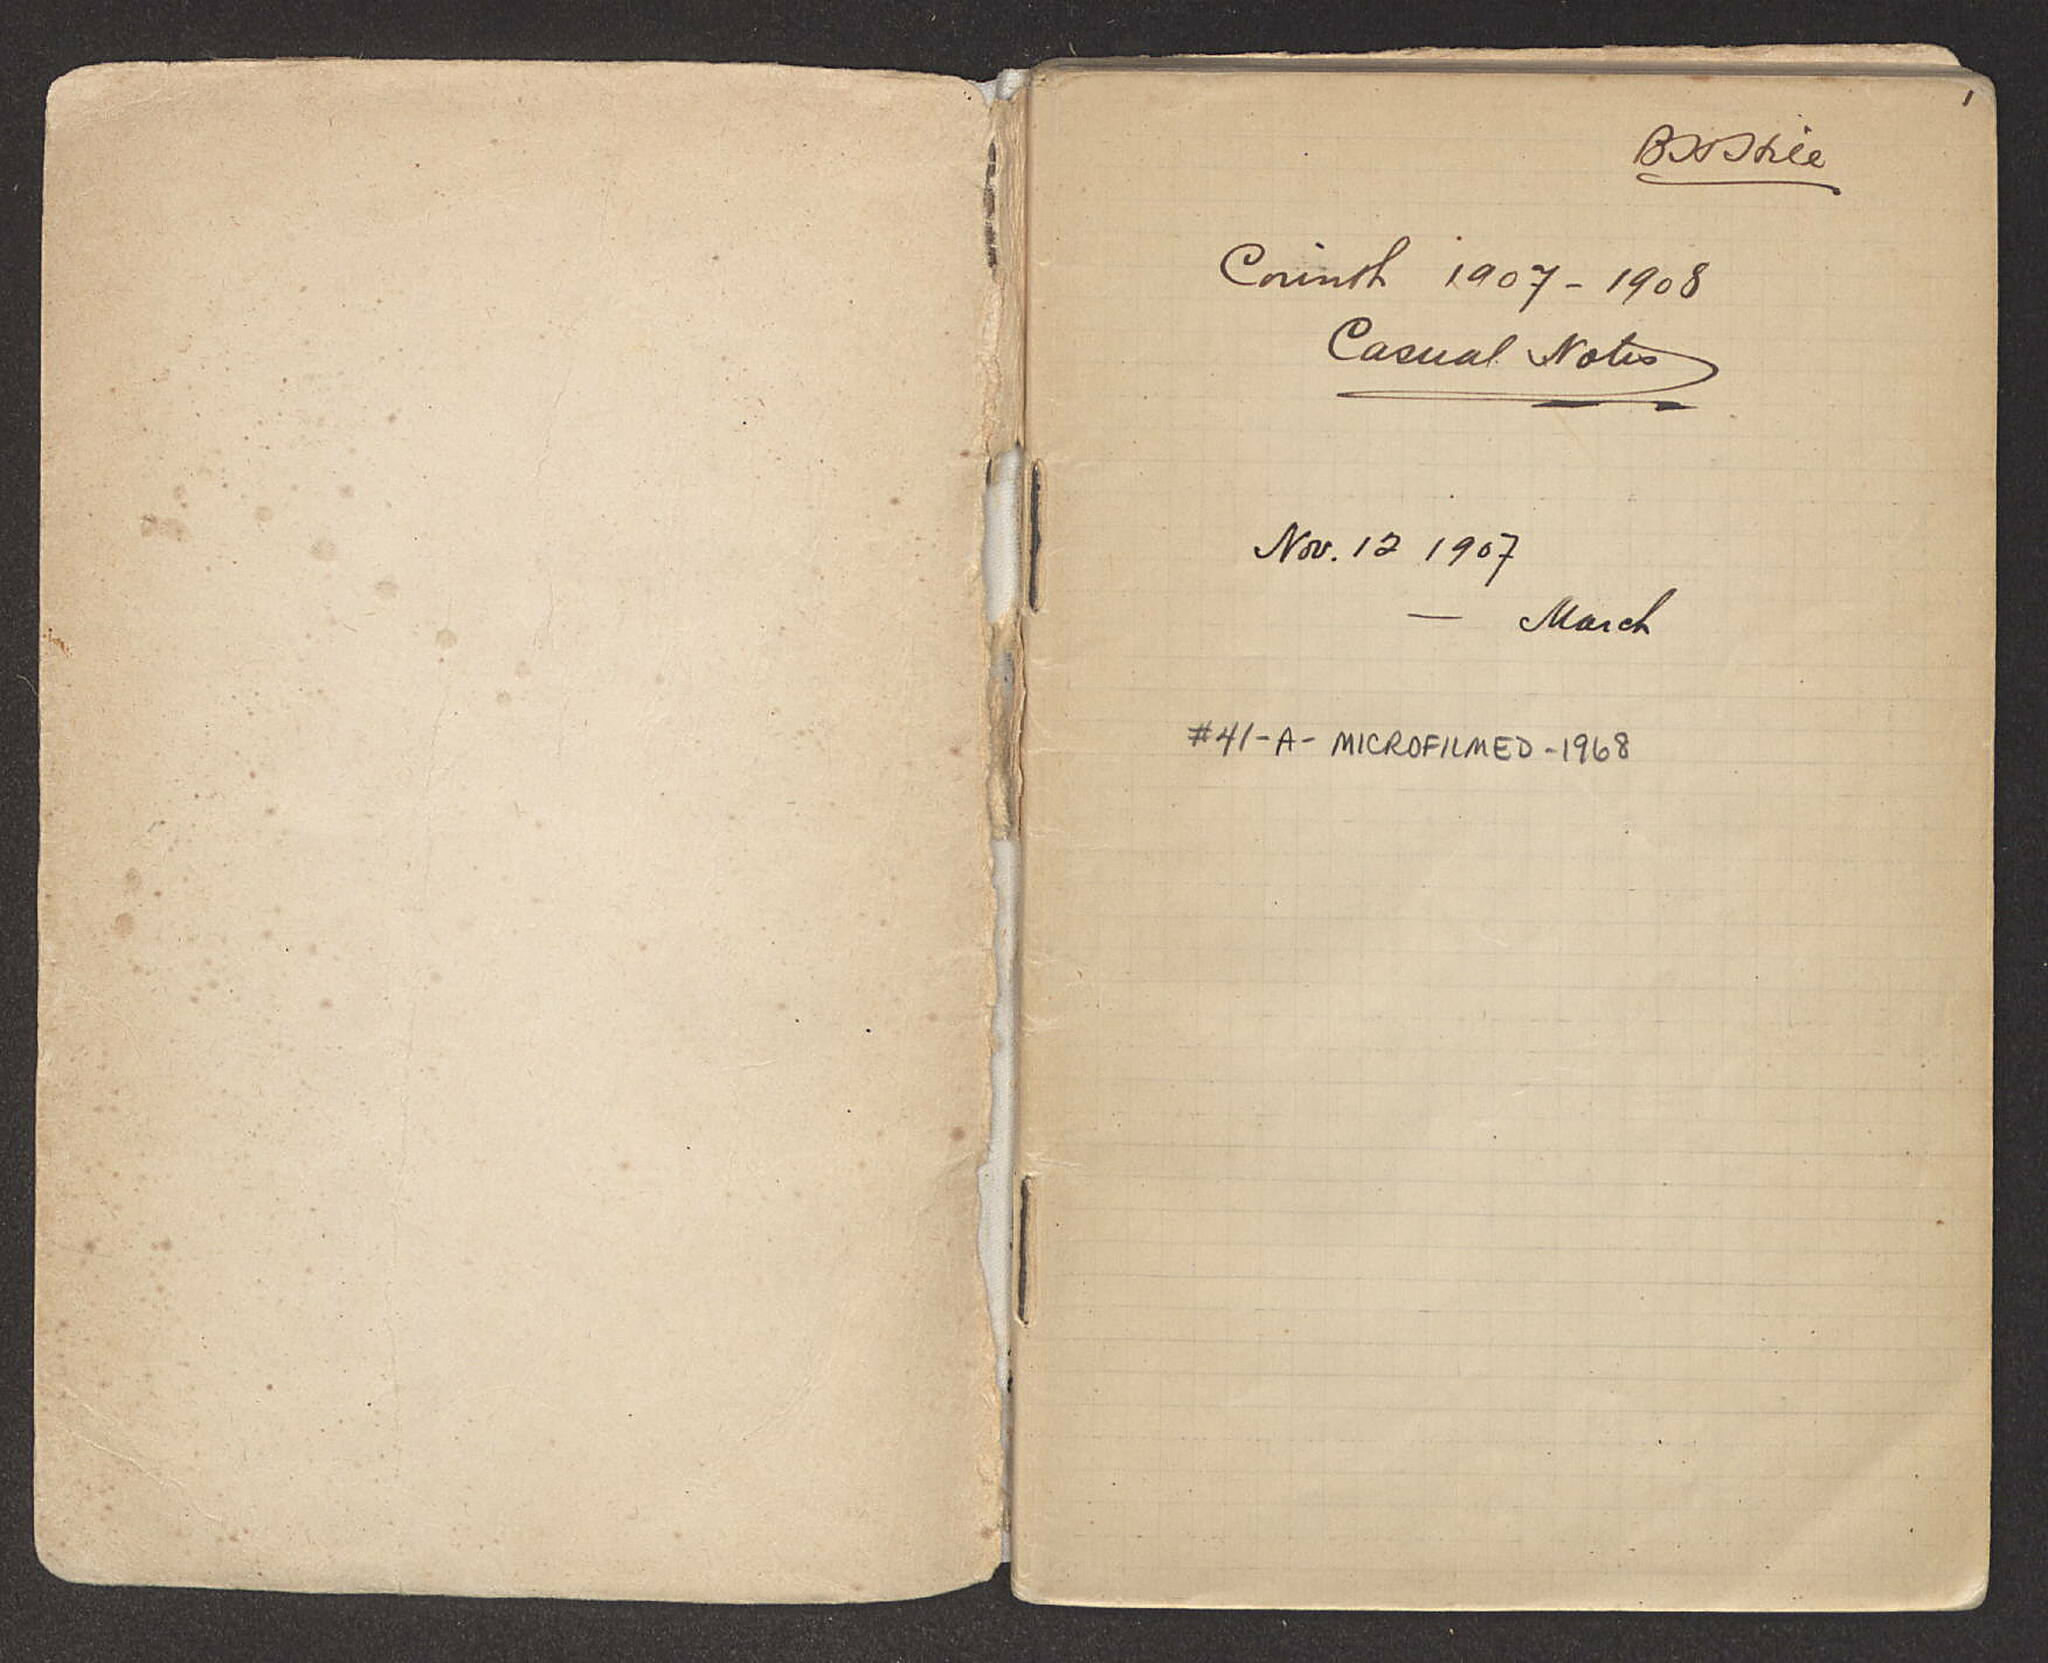 1
B H Hill
Corinth 1907-1908
Casual Notes
Nov. 12 1907
— March
#41-A- MICROFILMED -1968